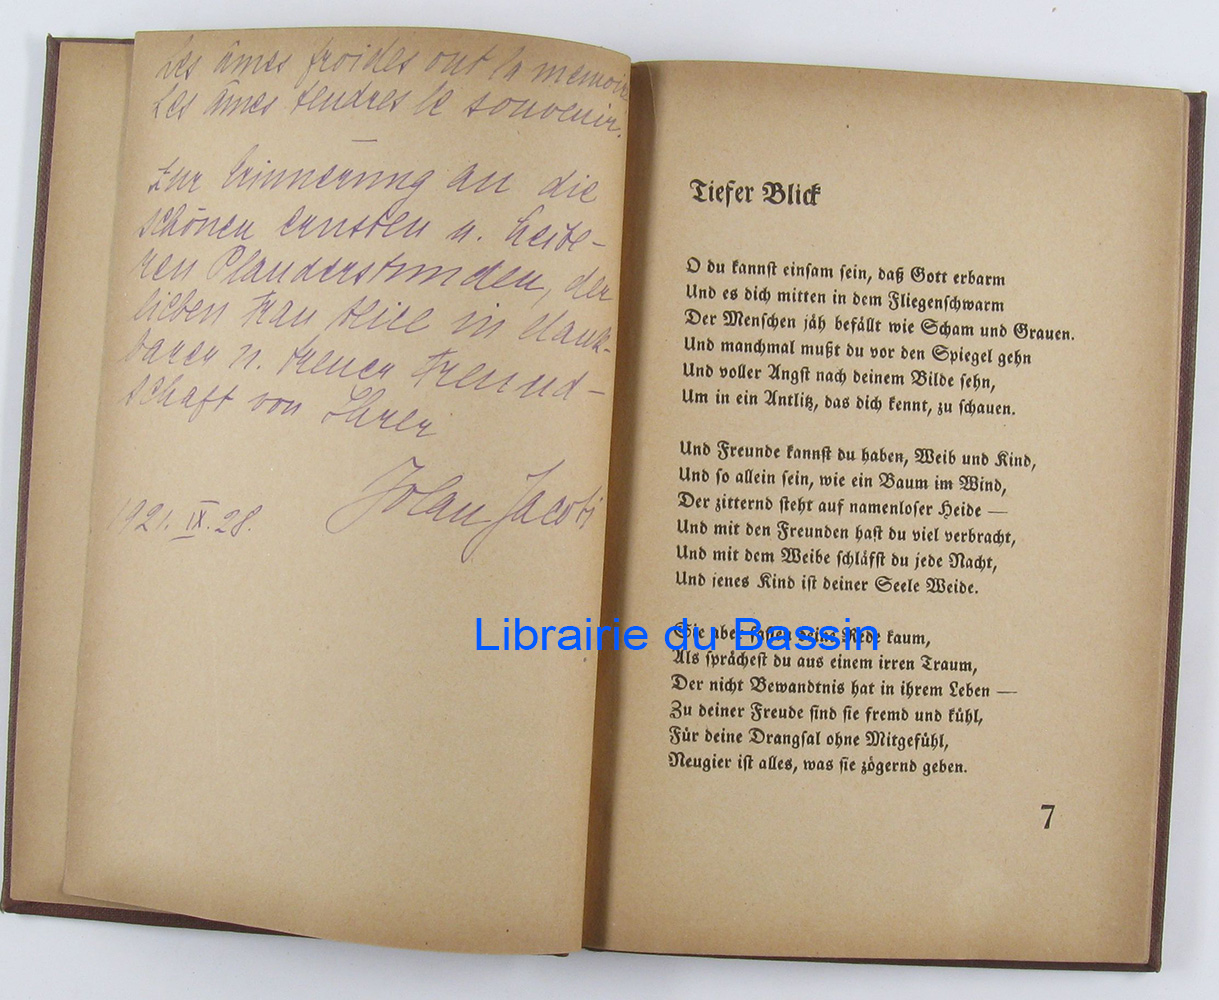 Les âmes froides ont la memoire
Les âmes tendres le souvenir.
Zur Erinnerung an die
schönen ernsten u. heite-
ren Plauderstunden, der
lieben Frau Alice in dank-
barer u. treuer Freund-
schaft von Ihrer
Jolan Jacobi
1921. IX. 28.
Tiefer Blick
O du kannst einsam sein, daß Gott erbarm
Und es dich mitten in dem Fliegenschwarm
Der Menschen jäh befällt wie Scham und Grauen.
Und manchmal mußt du vor den Spiegel gehn
Und voller Angst nach deinem Bilde sehn,
Um in ein Antlitz, das dich kennt, zu schauen.
Und Freunde kannst du haben, Weib und Kind,
Und so allein sein, wie ein Baum im Wind,
Der zitternd steht auf namenloser Heide —
Und mit den Freunden hast du viel verbracht,
Und mit dem Weibe schläfst du jede Nacht,
Und jenes Kind ist deiner Seele Weide.
Sie aber fassen deine Rede kaum,
Als sprächest du aus einem irren Traum,
Der nicht Bewandtnis hat in ihrem Leben —
Zu deiner Freude sind sie fremd und kühl,
Für deine Drangsal ohne Mitgefühl,
Neugier ist alles, was sie zögernd geben.
7
Librairie du Bassin